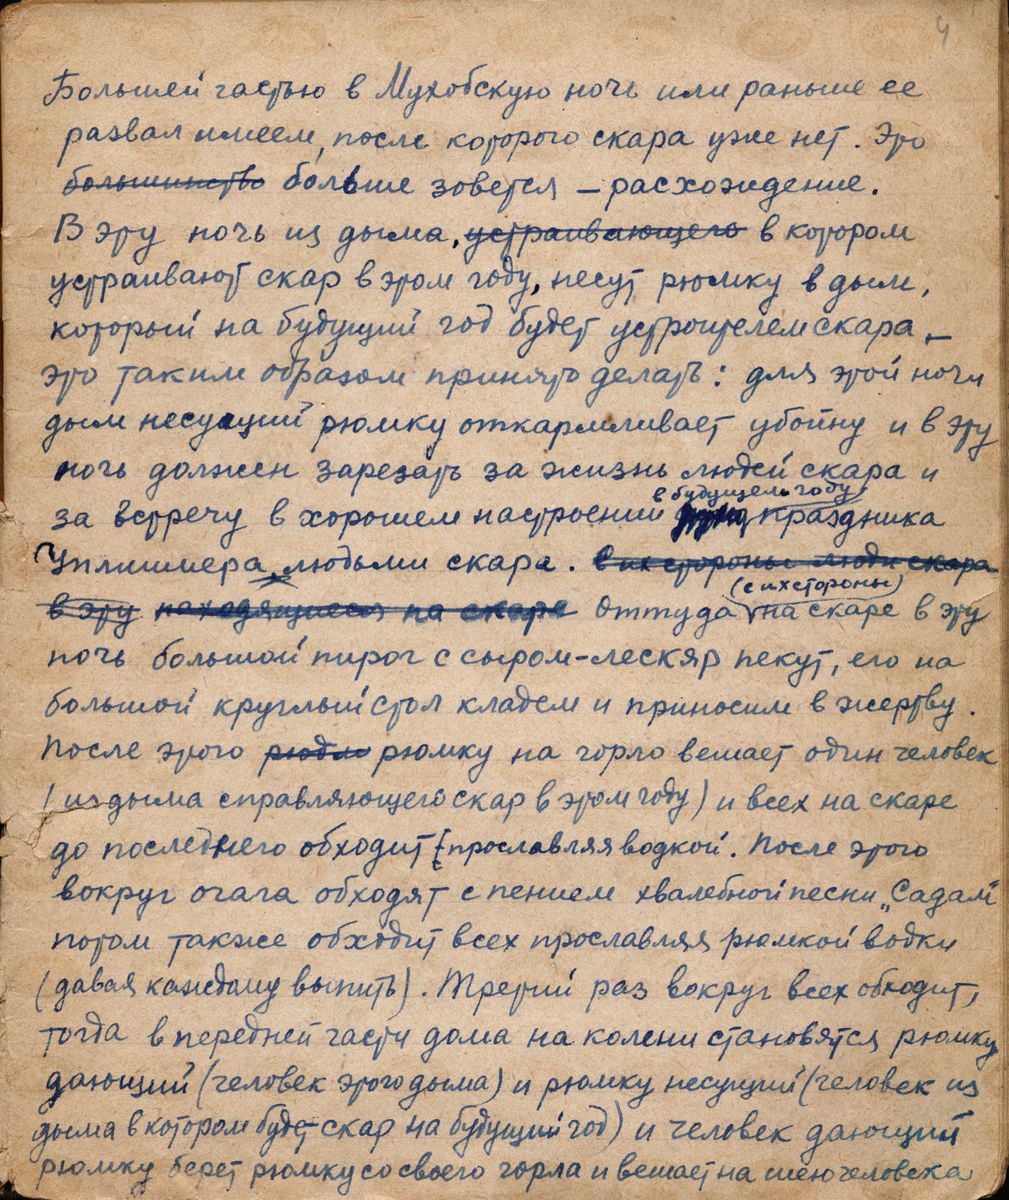 4
Большей частью в Мухобскую ночь или раньше ее
развал имеем, после которого скара уже нет. Это
большинство больше зовется – расхождение.
В эту ночь из дыма, устраивающего в котором
устраивают скар в этом году, несут рюмку в дым,
который на будущий год будет устроителем скара –
это таким образом принято делать: для этой ночи
дым несущий рюмку откармливает убойну и в эту
ночь должен зарезать за жизнь людей скара и
в будущем году
за встречу в хорошем настроении праздника
Уплишера людьми скара. в их стороны люди скара
(с их стороны)
в эту находящиеся на скаре Оттуда на скаре в эту
ночь большой пирог с сыром-лескяр пекут, его на
большой круглый стол кладем и приносим в жертву.
После этого рюмку на горло вешает один человек
(из дыма справляющего скар в этом году) и всех на скаре
до последнего обходит прославляя водкой. После этого
вокруг очага обходят с пением хвалебной песни „Садам"
потом также обходит всех прославляя рюмкой водки
(давая каждому выпить). Третий раз вокруг всех обходит,
тогда в передней части дома на колени становятся рюмку
дающий (человек этого дыма) и рюмку несущий (человек из
дыма в котором будет скар на будущий год) и человек дающий
рюмку берет рюмку со своего горла и вешает на шею человека